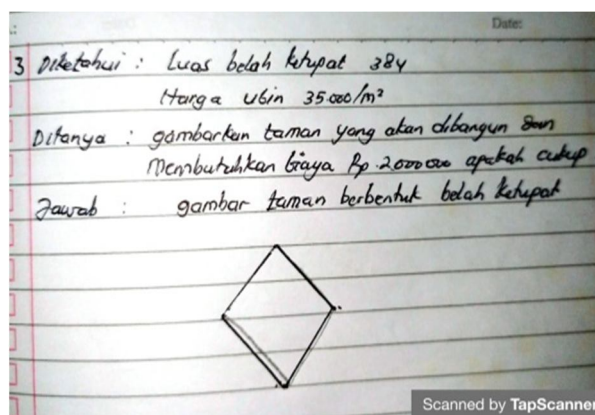 Date:
3 Diketahui : Luas belah ketupat 384
Harga ubin 35.000/m²
Ditanya : gambarkan taman yang akan dibangun dan
Membutuhkan biaya Rp. 2000000 apakah cukup
Jawab : gambar taman berbentuk belah ketupat
Scanned by TapScanner